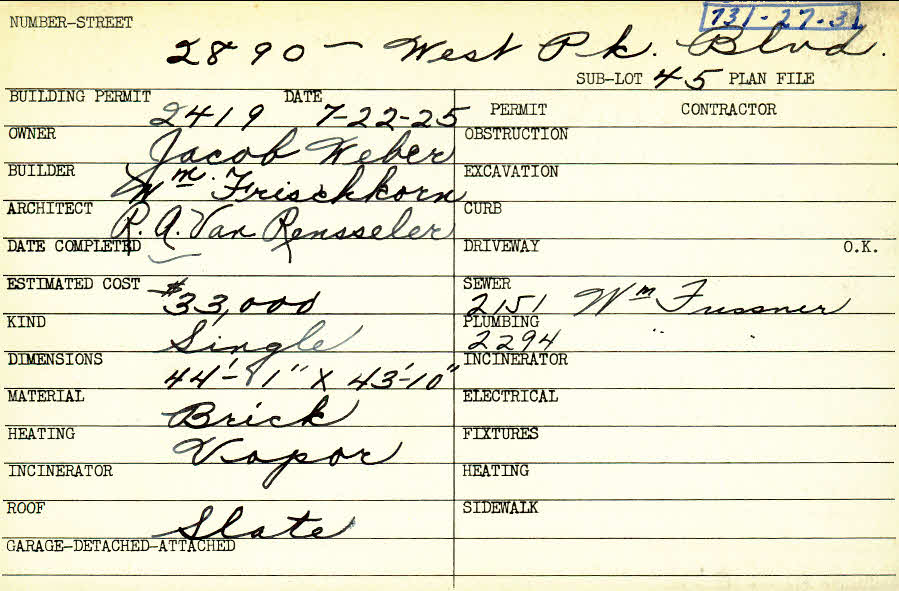 NUMBER-STREET 731-27-31
2890 - West Pk. Blvd.
SUB-LOT 45 PLAN FILE
BUILDING PERMIT DATE
2419 7-22-25
PERMIT CONTRACTOR
OWNER Jacob Weber
OBSTRUCTION
BUILDER Wm. Frischkorn
EXCAVATION
ARCHITECT R. A. Van Rensseler
CURB
DATE COMPLETED
DRIVEWAY O.K.
ESTIMATED COST $33,000
SEWER 2151 Wm Fussner
KIND Single
PLUMBING 2294 " "
DIMENSIONS 44'-11" X 43'-10"
INCINERATOR
MATERIAL Brick
ELECTRICAL
HEATING Vapor
FIXTURES
INCINERATOR
HEATING
ROOF Slate
SIDEWALK
GARAGE-DETACHED-ATTACHED